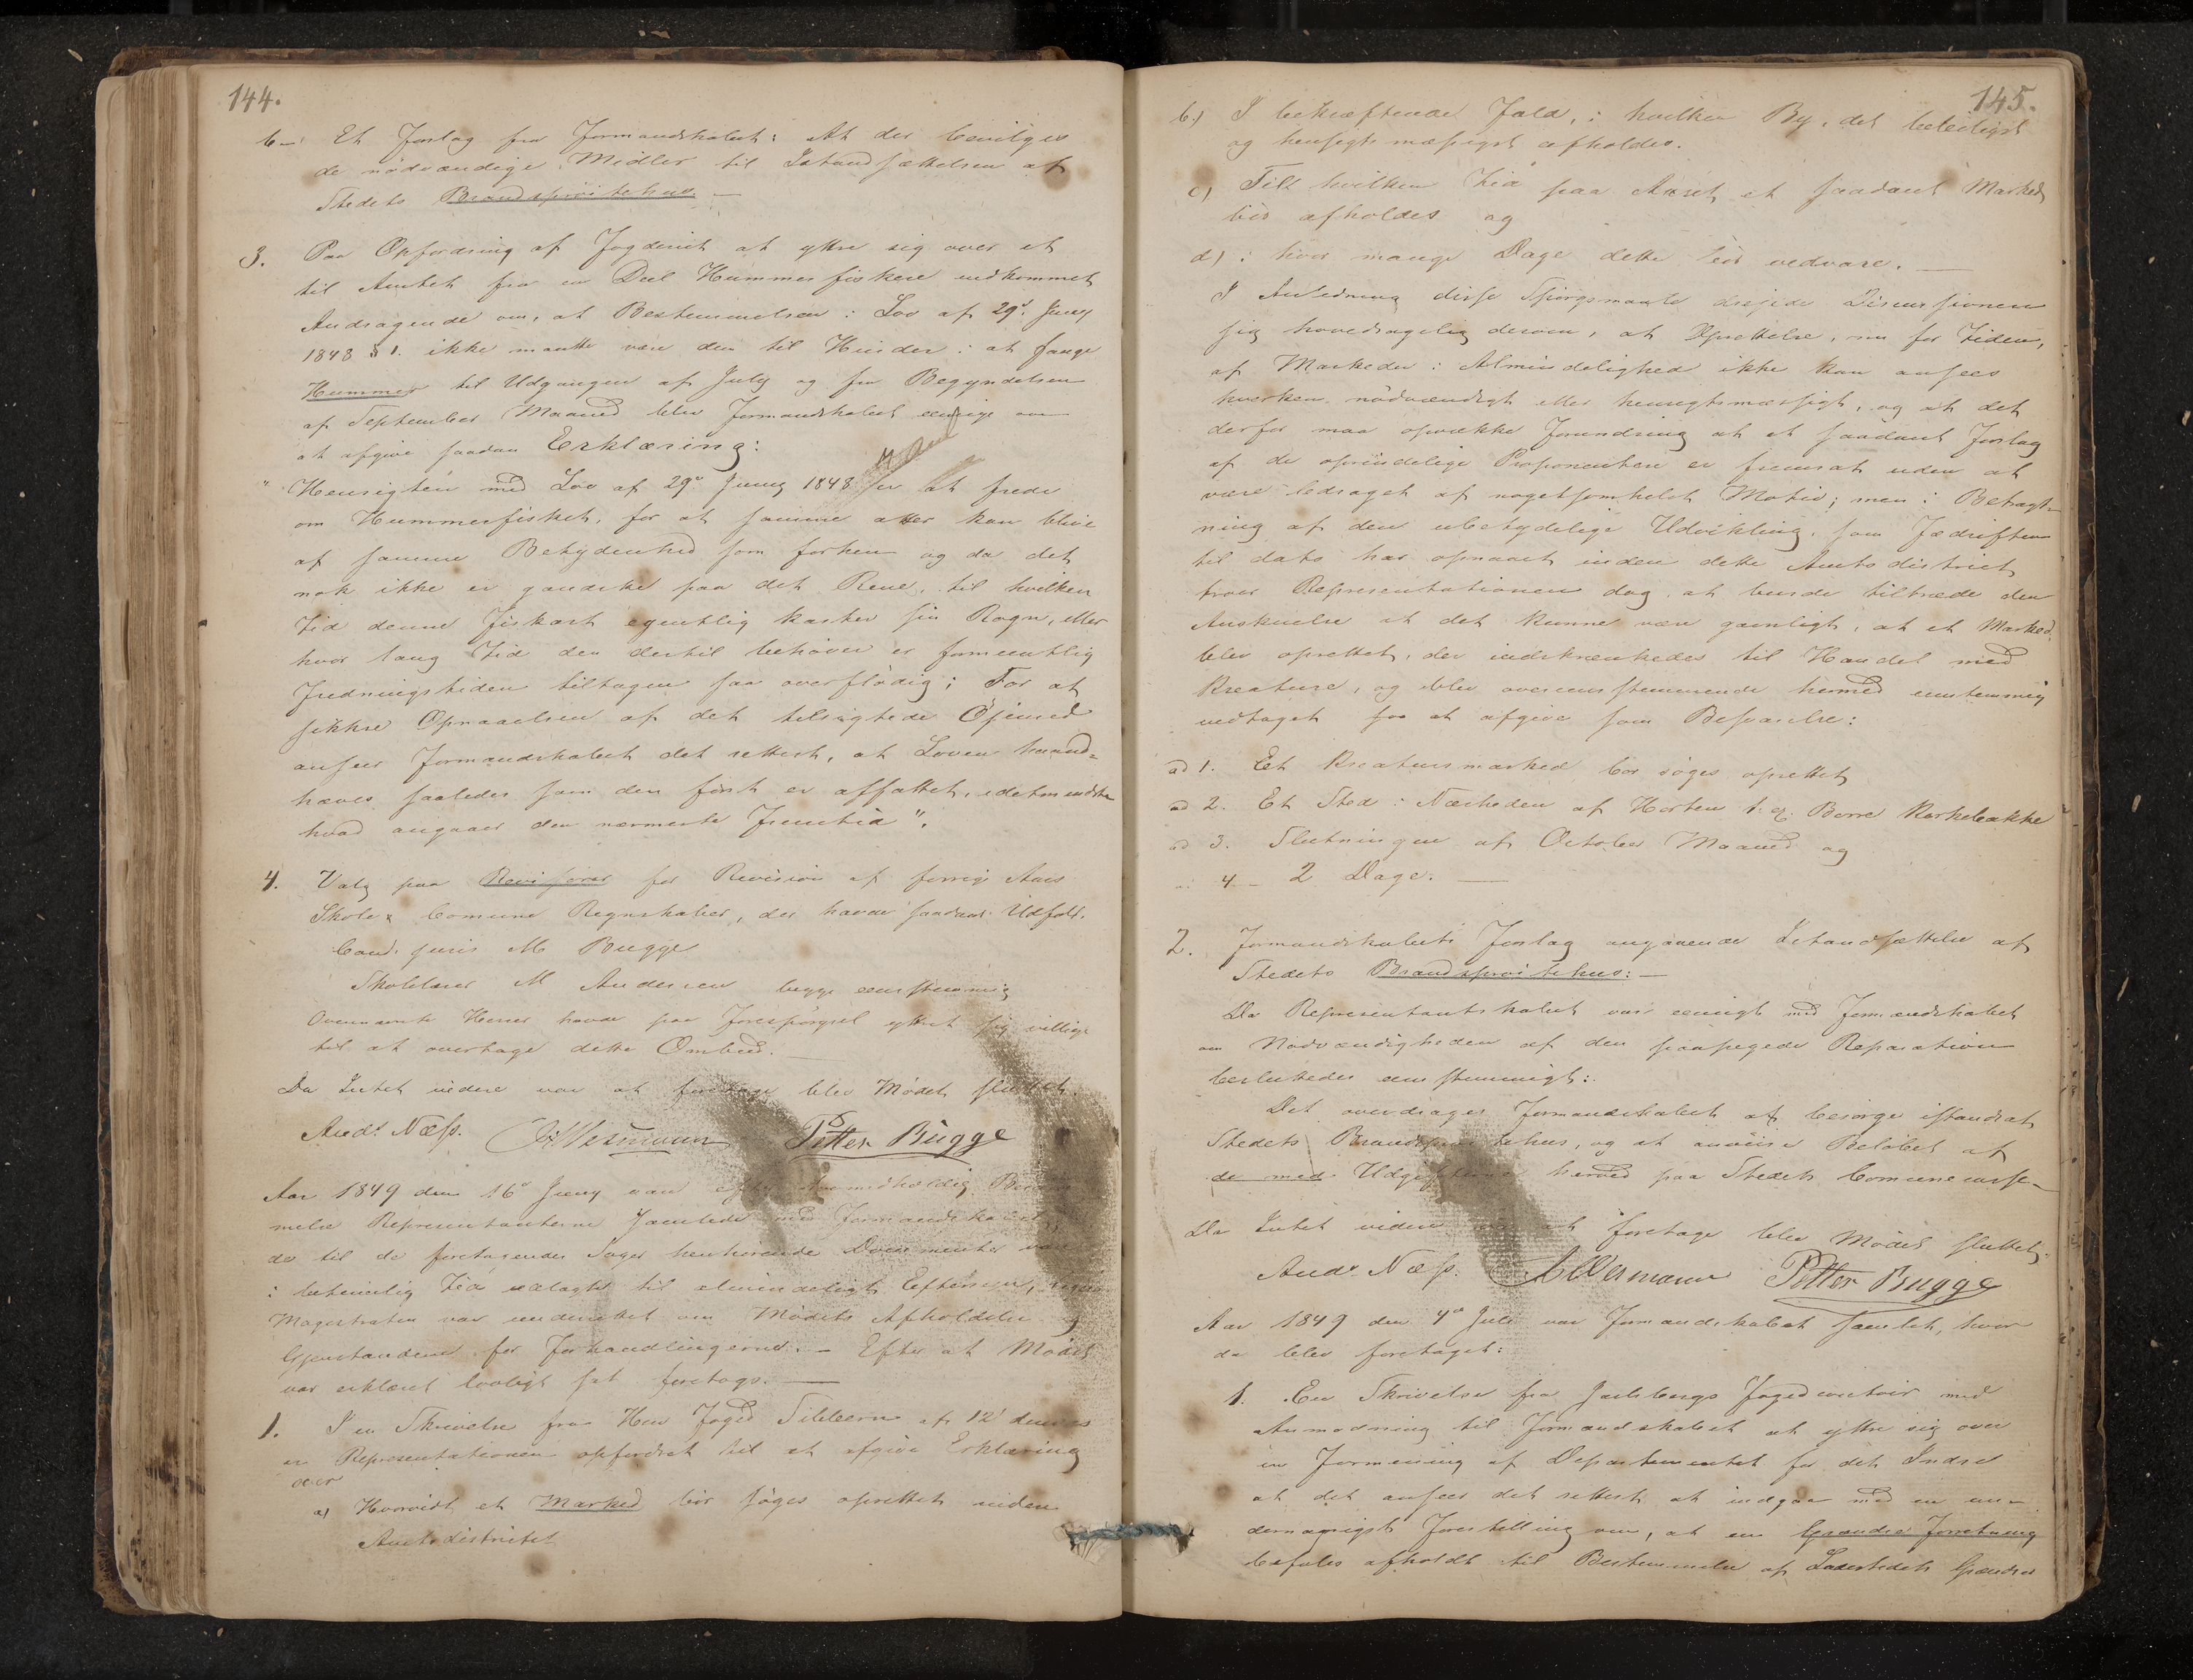 144.
b— Et Forslag fra Formandskabet: At der bevilges
de nödvændige Midler til Istandsættelsen af
Stedets Brandspröitehus. —
3. Paa Opfordring af Fogderiet at yttre sig over et
til Amtet fra en Deel Hummerfiskere indkommet
Andragende om, at Bestemmelsen i Lov af 29de Juny
1848 § 1. ikke maatte være dem til Hinder i at fange
Hummer til Udgangen af July og fra Begyndelsen
af September Maaned blev Formandskabet eenige om
at afgive saadan Erklæring:
"Hensigten med Lov af 29de Juny 1848 er at frede
om Hummerfisket, for at samme atter kan blive
af samme Betydenhed som forhen og da det
nok ikke er gandske paa det Rene, til hvilken
Tid denne Fiskart egentlig kaster sin Rogn, eller
hvor lang Tid den dertil behöver er formentlig
Fredningstiden tiltagen saa overflödig; For at
sikkre Opnaaelsen af det tilsigtede Öjemed
anseer Formandskabet det rettest, at Loven haand-
hæves saaledes som den först er affattet, idetmindste
hvad angaaer den nærmeste Fremtid".
4. Valg paa Revisorer for Revision af forrige Aars
Skole & Comune Regnskaber, der havde saadant Udfald.
Cand. juris M Bugge
Skolelærer M Andersen begge eenstemmig
Ovennævnte Herrer havde paa Forespörgsel yttret sig villige
til at overtage dette Ombud. —
Da Intet videre var at foretage blev Mödet sluttet.
Andr Næss. Wesmann Petter Bugge
Aar 1849 den 16de Juny vare efter medholdig
melse Representanterne samlede med Formandskabet,
de til de foretagendes Sager henhörende Documenter vare
i betimelig Tid udlagte til almindeligt Eftersyn,
Magistraten var underrettet om Mödets Afholdelse og
Gjenstandene for Forhandlingerne. — Efter at Mödet
var erklæret lovligt sat foretoges. —
1. I en Skrivelse fra Herr Foged af 12' dennes
er Representationen opfordret til at afgive Erklæring
over
a) Hvorvidt et Marked bör söges oprettet inden
Amtsdistrictet
145.
b) I bekræftende Fald, i hvilken By, det beleiligst
og hensigtsmæssigst afholdes.
c) Till hvilken Tid paa Aaret et saadant Marked
bör afholdes og
d) i hvor mange Dage dette bör vedvare. —
I Anledning disse Spörgsmaale drejede Discussionen
sig hovedsagelig derom, at Oprettelse, nu for Tiden,
af Markeder i Almindelighed ikke kan ansees
hverken nödvændigt eller hensigtsmæssigt, og at det
derfor maa opvække Forundring at et saadant Forslag
af de oprindelige Proponenter er fremsat uden at
være ledsaget af nogetsomhelst Motiv; men i Betragt-
ning af den ubetydelige Udvikling, som Fædriften
til dato har opnaaet inden dette Amtsdistrict,
troer Representationen dog, at burde tiltræde den
Anskuelse at det kunne være gavnligt, at et Marked
blev oprettet, der indskrænkedes til Handel med
Kreature, og blev overeensstemmende hermed eenstemmig
vedtaget for at afgive som Besvarelse:
ad 1. Et Kreatursmarked bör söges oprettet
ad 2. Et Sted i Nærheden af Horten f. ex. Borre Kirkebakke
ad 3. Slutningen af October Maaned og
4 — 2 Dage. —
2. Formandskabets Forslag angaaende Istandsættelse af
Stedets Brandspröitehus: —
Da Representantskabet var eenigt med Formandskabet
om Nödvændigheden af den paapegede Reparation
besluttedes eenstemmigt:
Det overdrages Formandskabet at besörge istandsat
Stedets Brandspröitehus, og at anvise Belöbet af
de med Udgifterne herved paa Stedets Comunecasse —
Da Intet videre var at foretage blev Mödet sluttet.
Andr Næss. Wesmann Petter Bugge
Aar 1849 den 4de Juli var Formandskabet samlet, hvor
da blev foretaget:
1. En Skrivelse fra Jarlsbergs Fogedcontoir med
Anmodning til Formandskabet at yttre sig over
en Formening af Departementet for det Indre
at det ansees det rettest at indgaa med en un-
derdanigst Forestilling om, at en Grændse Forretning
befales afholdt til Bestemmelse af Ladestedets Grændser